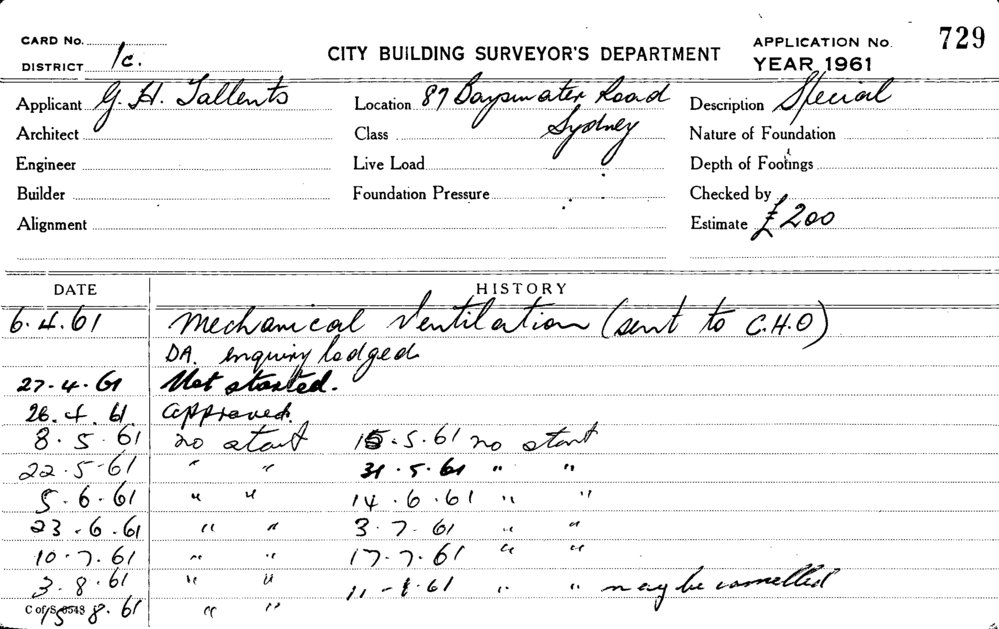 CARD No.
DISTRICT 1c.
CITY BUILDING SURVEYOR'S DEPARTMENT
APPLICATION No. 729
YEAR 1961
Applicant G. H. Tallents Location 87 Bayswater Road Description Special
Architect Class Sydney Nature of Foundation
Engineer Live Load Depth of Footings
Builder Foundation Pressure Checked by
Alignment Estimate £200
DATE HISTORY
6.4.61 Mechanical Ventilation (sent to C.H.O)
DA. enquiry lodged
27-4-61 Not started.
26.4.61 approved.
8.5.61 no start 15.5.61 no start
22.5-61 " " 31.5.61 " "
5.6.61 " " 14.6.61 " "
23.6.61 " " 3.7.61 " "
10.7.61 " " 17.7.61 " "
3.8.61 " " 61 " " may be cancelled
C of S 6543 15.8.61 " "